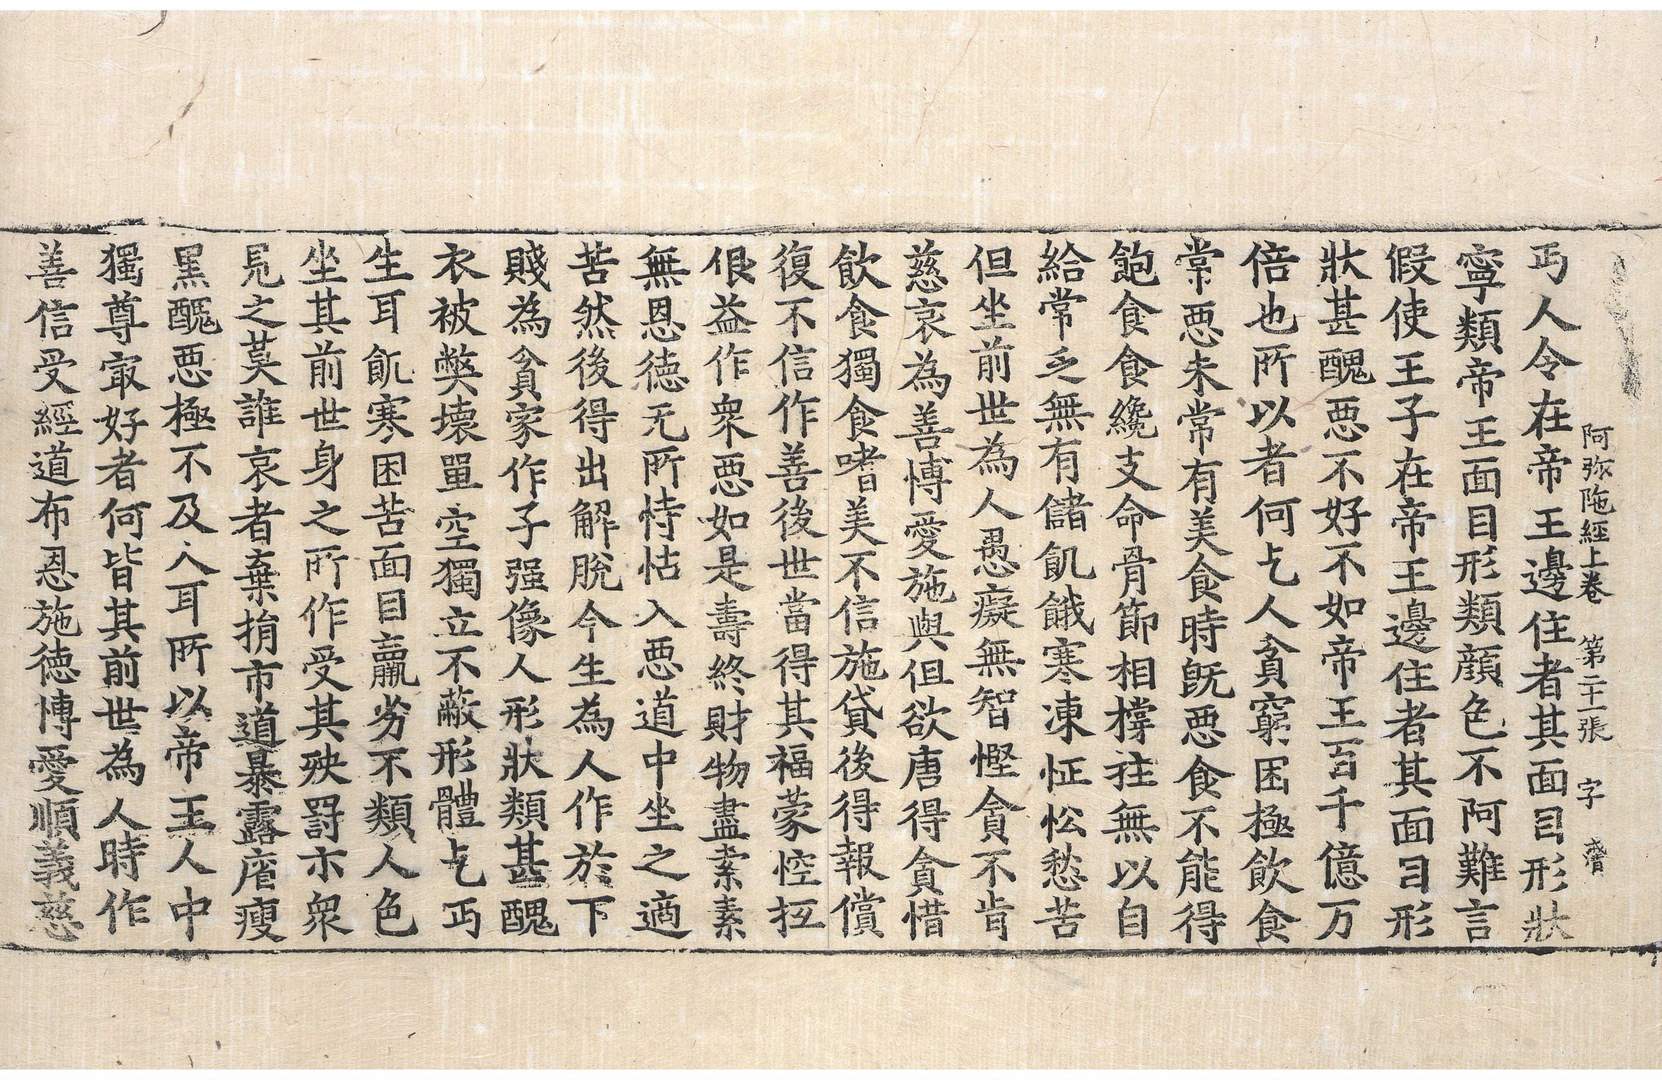 阿弥陁經上卷 第二十一張 字
丐人令在帝王邊住者其面目形狀
寧類帝王面目形類顔色不阿難言
假使王子在帝王邊住者其面目形
狀甚醜惡不好不如帝王百千億万
倍也所以者何乞人貧窮困極飲食
常惡未常有美食時既惡食不能得
飽食食纔支命骨節相撑拄無以自
給常乏無有儲飢餓寒凍怔忪愁苦
但坐前世為人愚癡無智慳貪不肯
慈哀為善愽愛施與但欲唐得貪惜
飲食獨食嗜美不信施貸後得報償
復不信作善後世當得其福蒙悾抂
佷益作衆惡如是壽終財物盡索素
無恩德无所恃怙入惡道中坐之適
苦然後得出解脫今生為人作於下
賤為貧家作子强像人形狀類甚醜
衣被弊壞單空獨立不蔽形體乞丐
生耳飢寒困苦面目羸劣不類人色
坐其前世身之所作受其殃罸示衆
見之莫誰哀者棄捐市道暴露痟瘦
黒醜惡極不及人耳所以帝王人中
獨尊㝡好者何皆其前世為人時作
善信受經道布恩施德愽愛順義慈